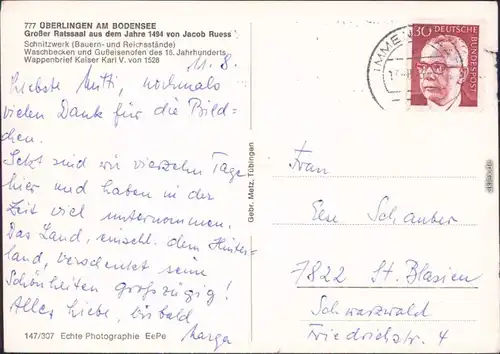 777 ÜBERLINGEN AM BODENSEE
Großer Ratssaal aus dem Jahre 1494 von Jacob Ruess
Schnitzwerk (Bauern- und Reichsstände)
Waschbecken und Gußeisenofen des 16. Jahrhunderts
Wappenbrief Kaiser Karl V. von 1528
11. 8.
Liebste Mutti, nochmals
vielen Dank für die Bild-
chen.
Jetzt sind wir vierzehn Tage
hier und haben in der
Zeit viel unternommen.
Das Land, einschl. dem Hinter-
land, verschenkt seine
Schönheiten großzügig!
Alles Liebe, bis bald
Marga
147/307 Echte Photographie EePe
Gebr. Metz, Tübingen
IMMEN
30 DEUTSCHE
BUNDESPOST
Frau
Schauber
7822 St. Blasien
Schwarzwald
Friedrichstr. 4